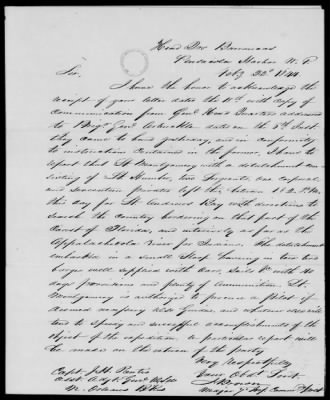 Head Qrs Barrancas
Pensacola Harbor W. F.
Feby 22d 1844
Sir,
I have the honor to acknowledge the
receipt of your letter dated the with copy of
communication from Genl Head Quarters addressed
to Brigr Genl Arbuckle dated on the 5th Inst.
They came to me yesterday, and in conformity
to instructions contained in the former, I have to
report that Lt Montgomery with a detachment con-
sisting of two Sergeants one corporal
and seventeen privates left this Station at 2 P.M.
this day for St Andrews Bay with directions to
search the Country bordering on that part of the
Coast of Florida, and interiorly as far as the
Appalachicola River for Indians. The detachment
embarked in a small Sloop having in tow two
barges well supplied with Oars, Sails &c with 40
days provisions and plenty of Ammunition. Lt.
Montgomery is authorized to procure a Pilot if
deemed necessary also Guides, and whatever else will
tend to speedy and successful accomplishments of the
object of the expedition. A particular report will
be made on the return of the party
Very Respectfully
Your Obdt Servt
Capt. J. H. Prentiss
Asst Adjt Genl
N. Orleans
Major & Comg